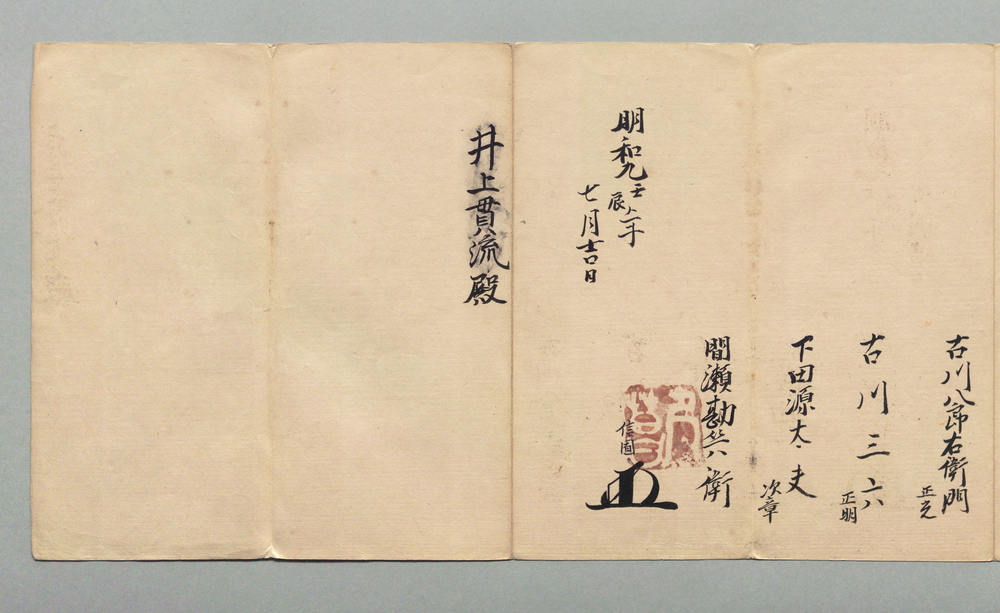 古川八郎右衛門
正光
古川三六
正明
下田源太夫
次章
間瀬勘兵衛
信固
明和九壬辰年
七月吉日
井上貫流殿